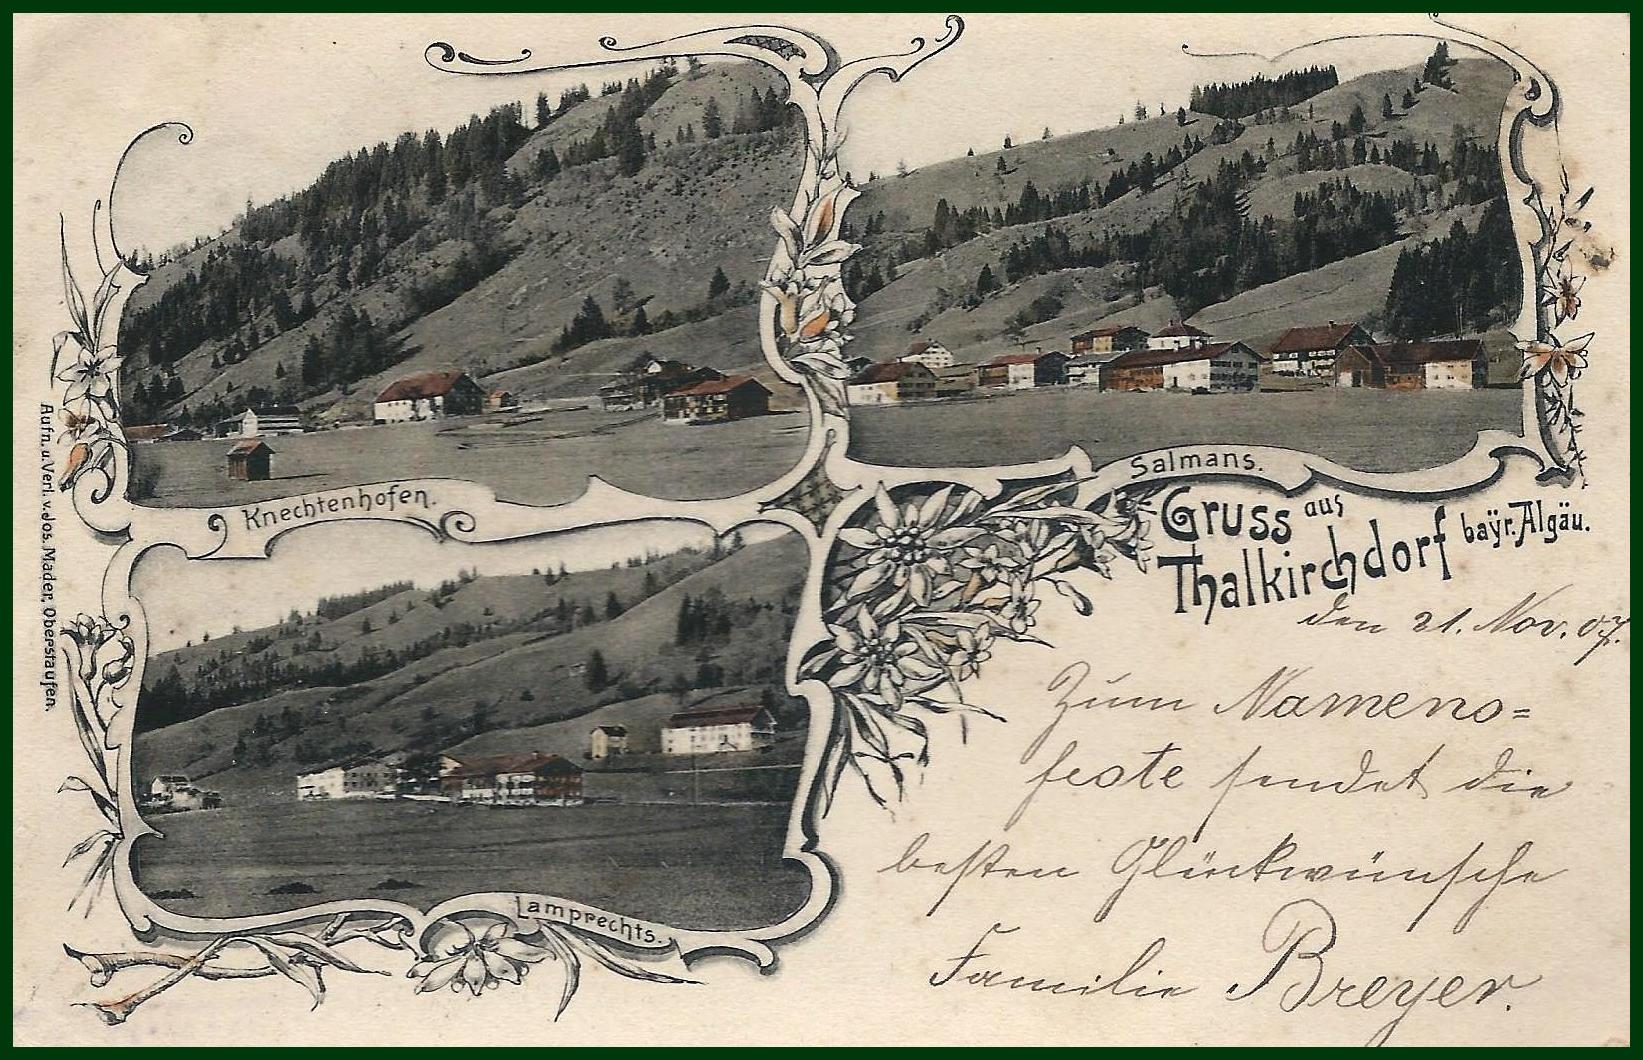 Knechtenhofen.
Salmans.
Gruss aus
Thalkirchdorf bayr. Algäu.
Lamprechts.
Aufn. u. Verl. v. Jos. Mader, Oberstaufen.
den 21. Nov. 07.
Zum Namens=
feste sendet die
besten Glückwünsche
Familie Breyer.